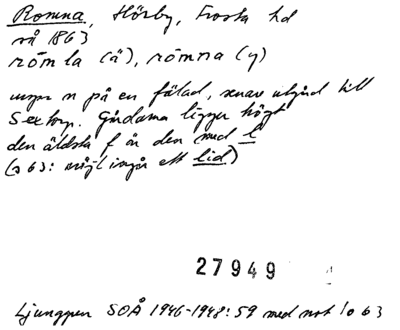 Romna, Hörby, Frosta hd
så 1863
römla (ä), römna (y)
urspr n på en fälad, senare utgård till
Sextorp. Gårdarna ligger högt
den äldsta f är den med l
(s 63: möjl ingår ett lid.)
27949
Ljunggren SOÅ 1946-1948: 59 med not 1 o 63